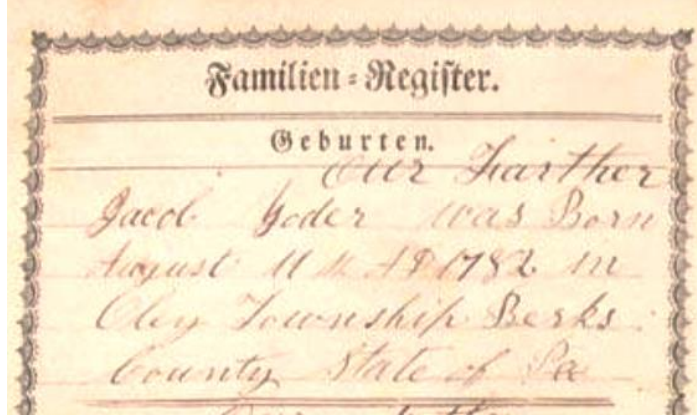 Familien-Register.
Geburten.
Our Farther
Jacob Yoder was Born
August 11 th AD 1782 in
Oley Township Berks
County State of Pa
Our